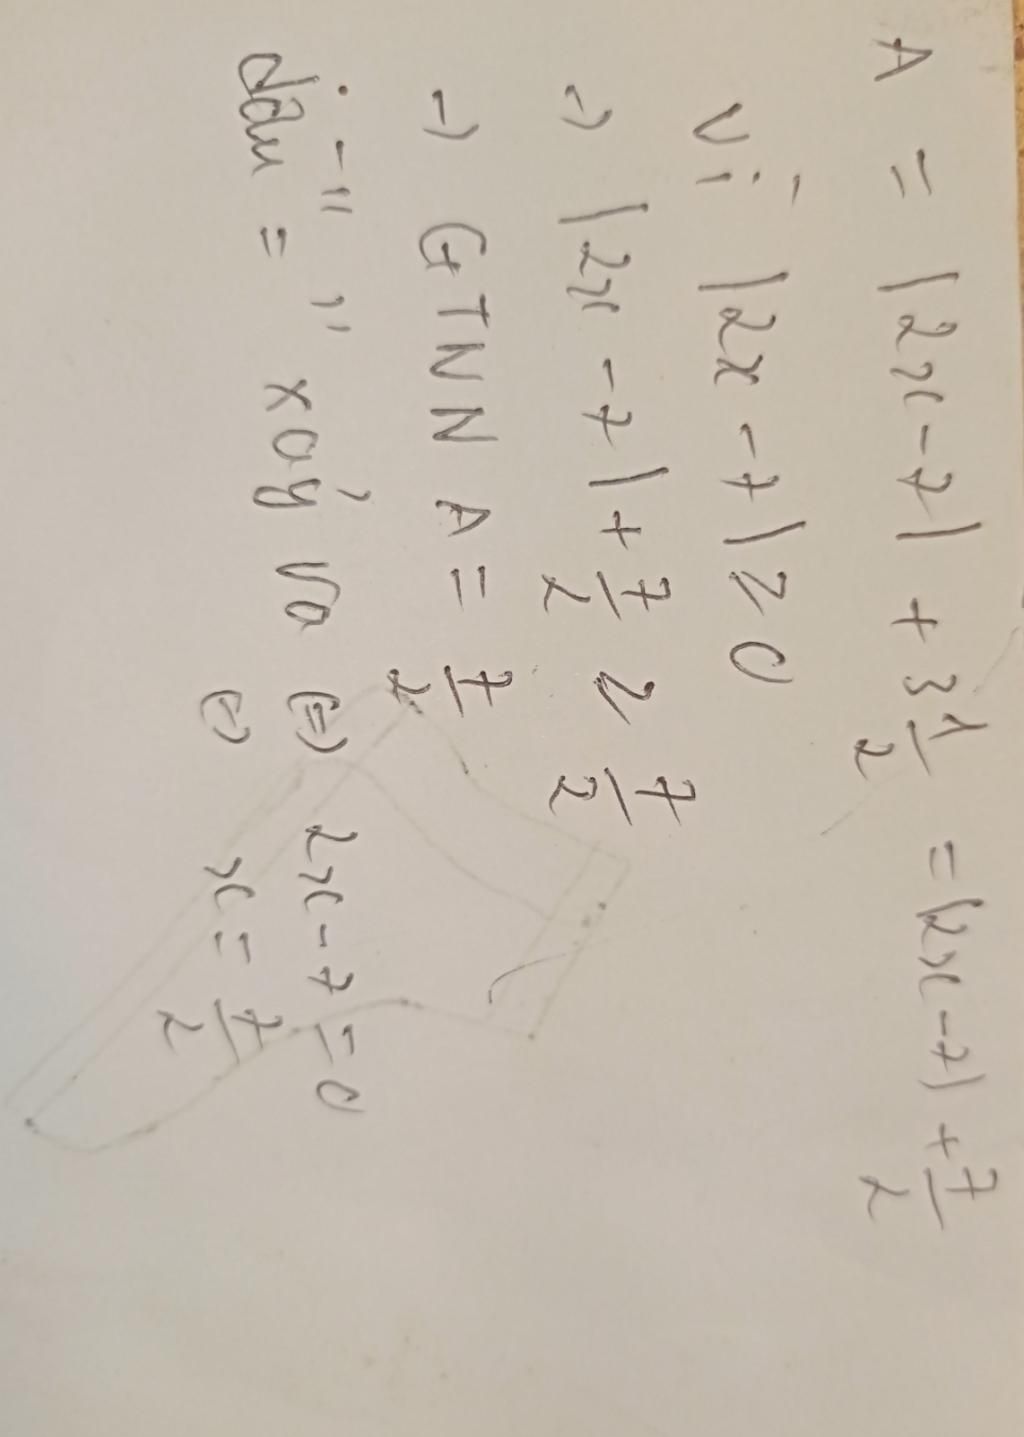 A = |2x-7| + 3 1/2 = |2x-7| + 7/2
Vì |2x-7| ≥ 0
→ |2x-7| + 7/2 ≥ 7/2
→ GTNN A = 7/2
dấu "=" xảy ra ⇔ 2x-7=0
⇔ x = 7/2